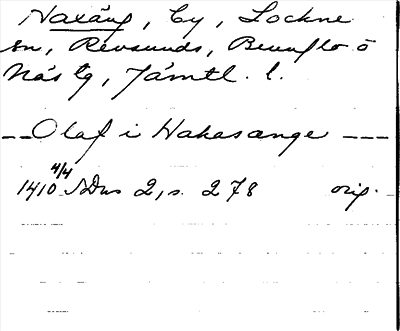 Haxäng, by, Lockne
sn, Revsunds, Brunflo o
Näs tg, Jämtl. l.
--- Olaf i Hakasange ---
1410 4/4 SDns 2, s. 278 orig.